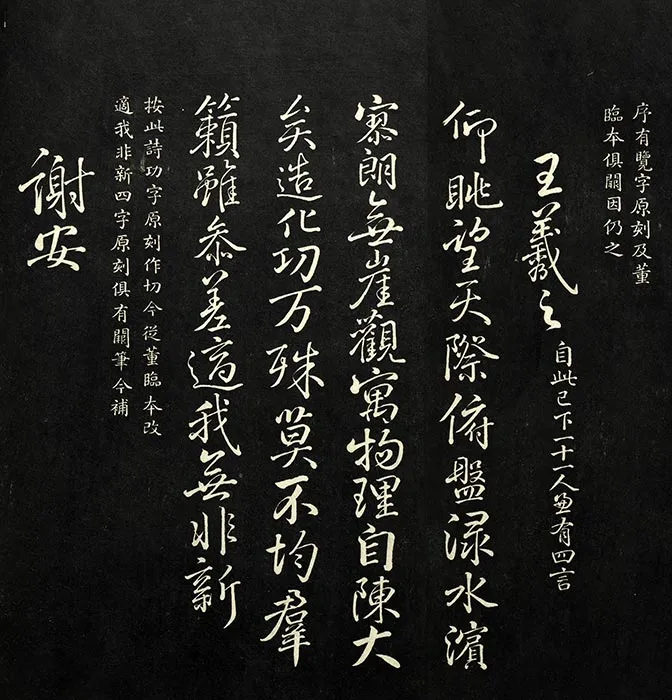 序有覽字原刻及董
臨本俱闕因仍之
王羲之 自此已下一十一人兼有四言
仰眺望天際俯盤淥水濱
寥朗無崖觀寓物理自陳大
矣造化功万殊莫不均羣
籟雖參差適我無非新
按此詩功字原刻作切今從董臨本改
適我非新四字原刻俱有闕筆今補
謝安